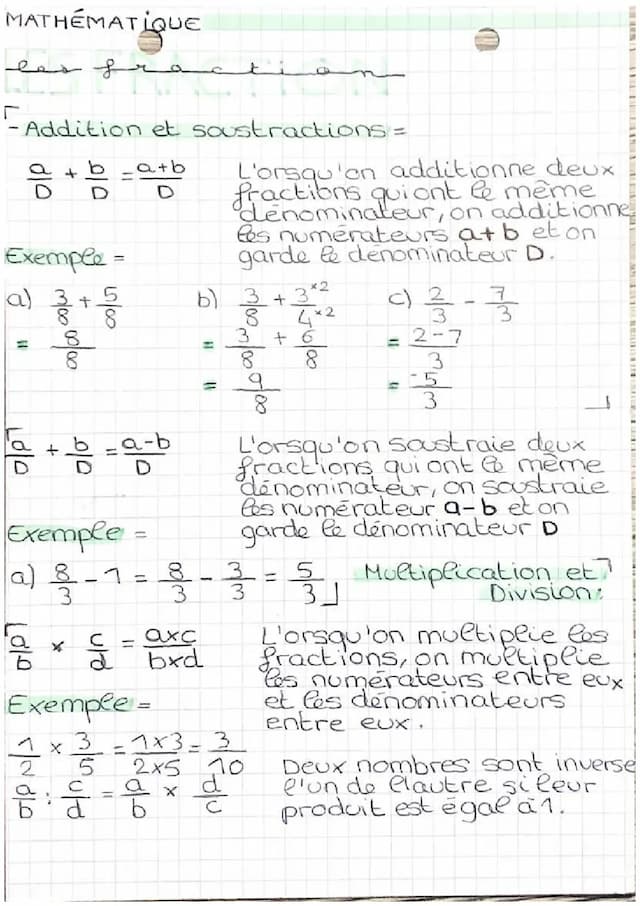 MATHÉMATIQUE
les fraction
- Addition et soustractions =
a/D + b/D = a+b/D
L'orsqu'on additionne deux
fractions qui ont le même
dénominateur, on additionne
les numérateurs a+b et on
garde le dénominateur D.
Exemple =
a) 3/8 + 5/8
= 8/8
b) 3/8 + 3×2/4×2
= 3/8 + 6/8
= 9/8
c) 2/3 - 7/3
= 2-7/3
= -5/3
a/D + b/D = a-b/D
L'orsqu'on soustraie deux
fractions qui ont le même
dénominateur, on soustraie
les numérateur a-b et on
garde le dénominateur D
Exemple =
a) 8/3 - 1 = 8/3 - 3/3 = 5/3
Multiplication et
Division:
a/b × c/d = axc/bxd
L'orsqu'on multiplie les
fractions, on multiplie
les numérateurs entre eux
et les dénominateurs
entre eux.
Exemple =
1/2 × 3/5 = 1×3/2×5 = 3/10
a/b : c/d = a/b × d/c
Deux nombres sont inverse
l'un de l'autre si leur
produit est égal à 1.